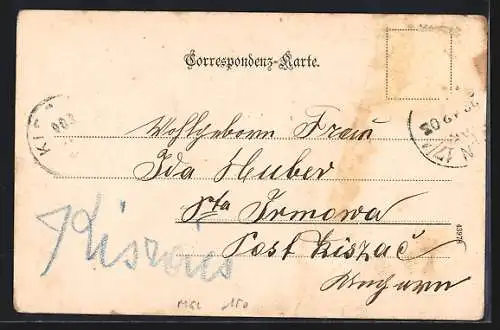 Correspondenz-Karte.
Wohlgeborn Frau
Ida Huber
Pta Irmowa
Post Kiszač
Ungarn
Kiszács
43976
150